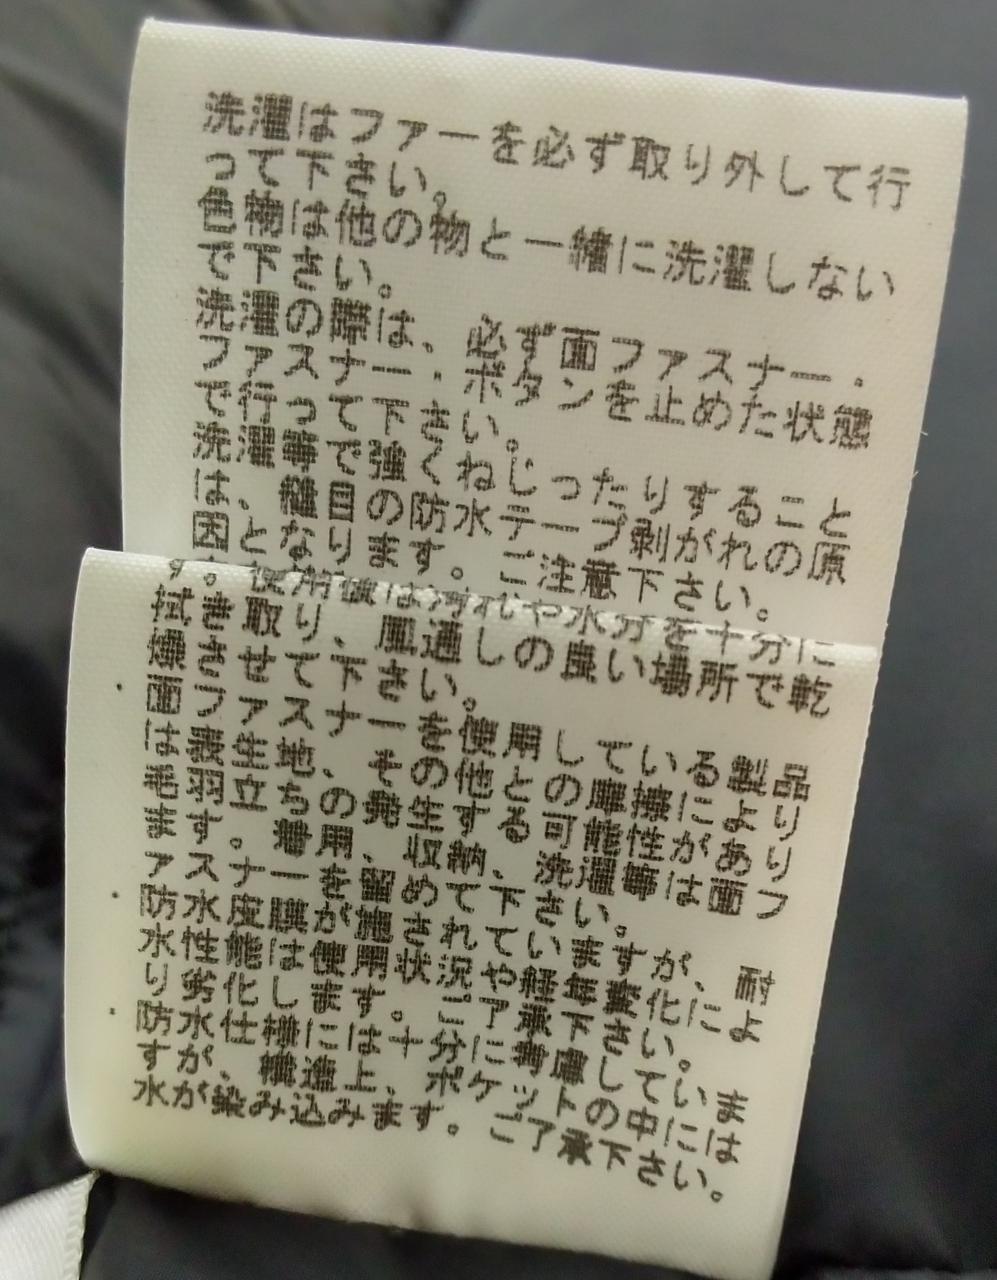 洗濯はファーを必ず取り外して行
って下さい。
色物は他の物と一緒に洗濯しない
で下さい。
洗濯の際は、必ず面ファスナー・
ファスナー・ボタンを止めた状態
で行って下さい。
洗濯等で強くねじったりすること
は、縫目の防水テープ剥がれの原
因となります。ご注意下さい。
す。使用後は汚れや水分を十分に
拭き取り、風通しの良い場所で乾
燥させて下さい。
・面ファスナーを使用している製品
は表生地、その他との摩擦により
毛羽立ちの発生する可能性があり
ます。着用、収納、洗濯等は面フ
ァスナーを留めて下さい。
・防水皮膜が施されていますが、耐
水性能は使用状況や経年変化によ
り劣化します。ご了承下さい。
・防水仕様には十分に考慮していま
すが、構造上、ポケットの中には
水が染み込みます。ご了承下さい。